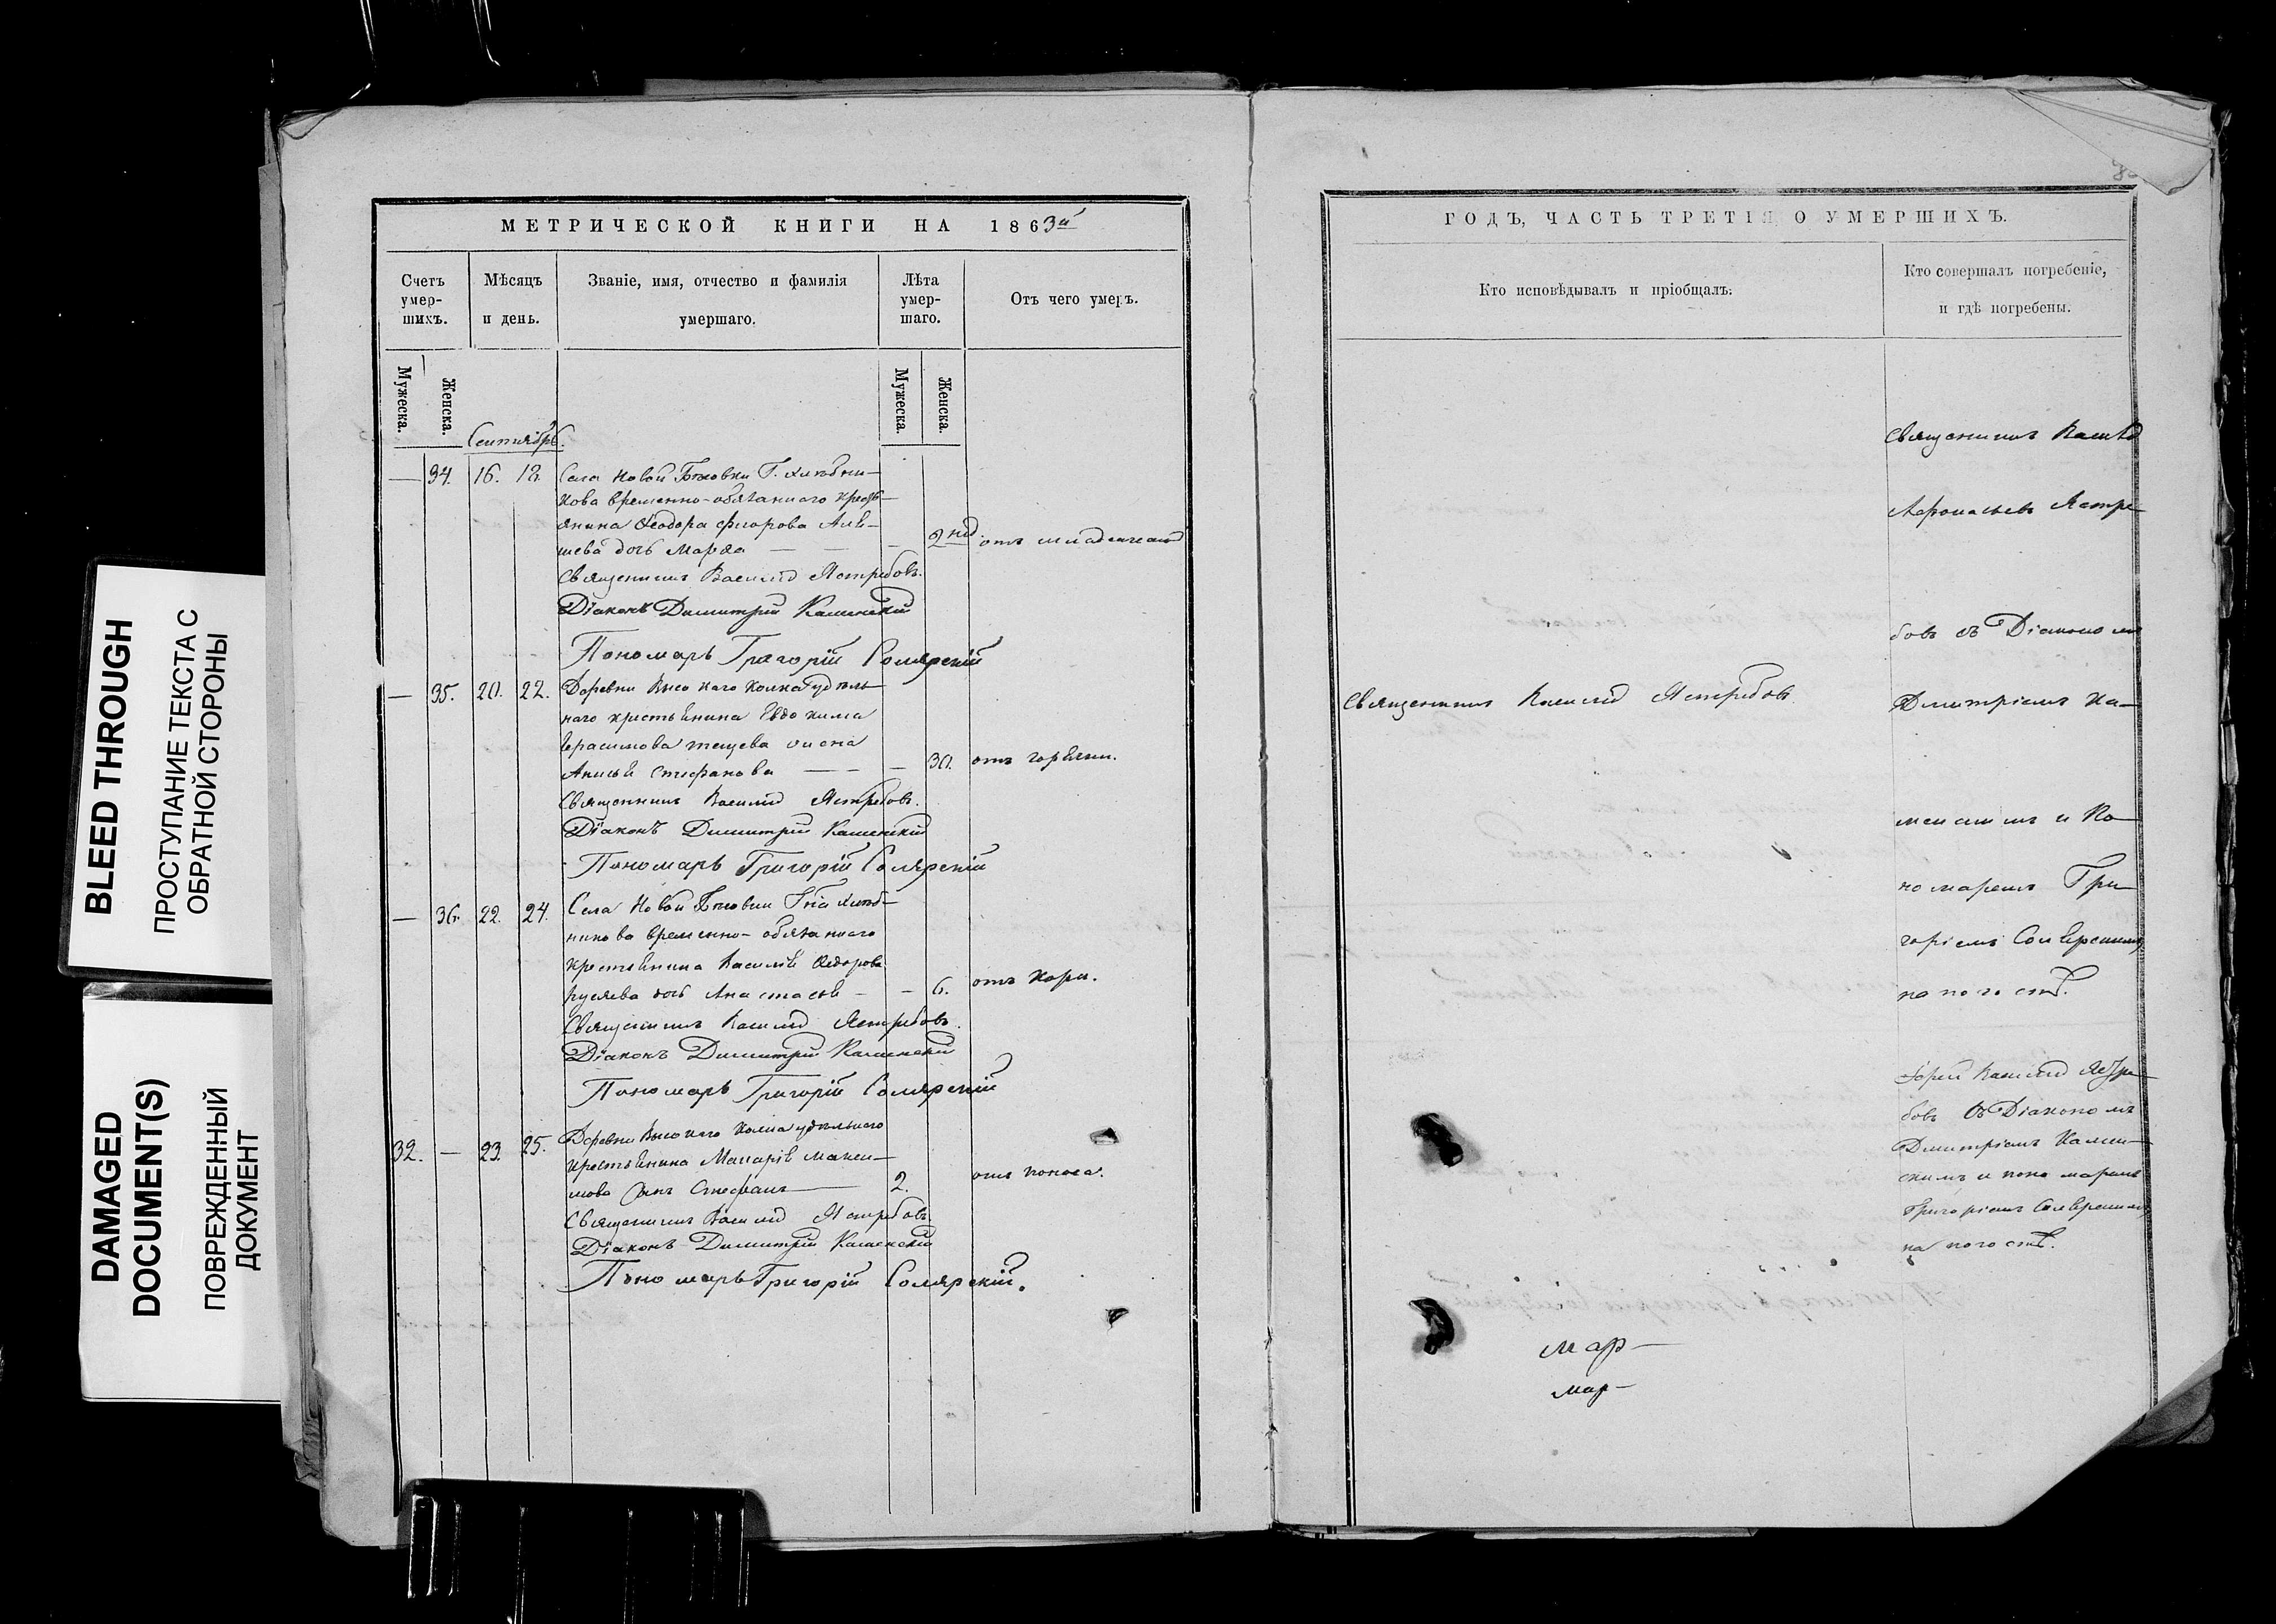 BLEED THROUGH
ПРОСТУПАНИЕ ТЕКСТА С
ОБРАТНОЙ СТОРОНЫ
DAMAGED
DOCUMENT(S)
ПОВРЕЖДЕННЫЙ
ДОКУМЕНТ
МЕТРИЧЕСКОЙ КНИГИ НА 1863й
Счетъ умер-шихъ.
Мѣсяцъ и день.
Званіе, имя, отчество и фамилія умершаго.
Лѣта умер-шаго.
Отъ чего умеръ.
Мужеска.
Женска.
Мужеска.
Женска.
Сентябрь.
— 34. 16. 18. Села Новой
кова временно-обязаннаго крест-
янина Ѳеодора
дочь Марѳа — — — 2 нед. отъ младенческой
Священникъ Василій Ястребовъ.
Діаконъ Димитрій Каменскій
Пономарь Григорій Солярскій
— 35. 20. 22. Деревни Высокаго удѣль-
наго крестьянина Евдокима
Герасимова жена
Стефанова — — — 30. отъ горячки.
Священникъ Василій Ястребовъ.
Діаконъ Димитрій Каменскій
Пономарь Григорій Солярскій
— 36. 22. 24. Села Новой
никова временно-обязаннаго
крестьянина Василія Ѳедорова
дочь Анастасія — — 6. отъ кори.
Священникъ Василій Ястребовъ.
Діаконъ Димитрій Каменскій
Пономарь Григорій Солярскій
32. — 23. 25. Деревни Высокаго удѣльнаго
крестьянина Макарія Макси-
мова сынъ Стефанъ — 2. отъ поноса.
Священникъ Василій Ястребовъ.
Діаконъ Димитрій Каменскій
Пономарь Григорій Солярскій.
ГОДЪ, ЧАСТЬ ТРЕТІЯ О УМЕРШИХЪ.
Кто исповѣдывалъ и пріобщалъ.
Кто совершалъ погребеніе,
и гдѣ погребены.
Священникъ Василій Ястребовъ
Священникъ Василій
Ястре-
бовъ съ Діакономъ
Димитріемъ Ка-
менскимъ и По-
номаремъ Гри-
горіемъ Солярскимъ
на погостѣ.
Іерей Василій Ястре-
бовъ съ Діакономъ
Димитріемъ Камен-
скимъ и пономаремъ
Григоріемъ Солярскимъ
на погостѣ.
Мар-
мар-